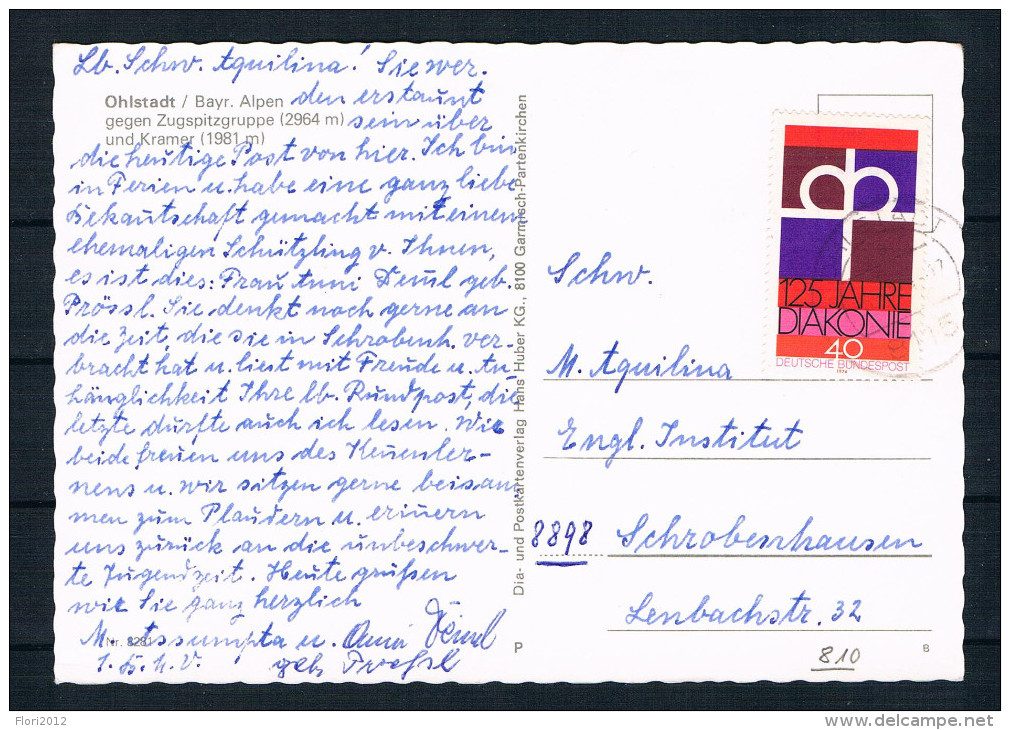 Lb. Schw. Aquilina! Sie wer-
Ohlstadt / Bayr. Alpen
gegen Zugspitzgruppe (2964 m)
und Kramer (1981 m)
den erstaunt
sein über
die heutige Post von hier. Ich bin
in Ferien u. habe eine ganz liebe
Bekantschaft gemacht mit einem
ehemaligen Schützling v. Ihnen,
es ist dies: Frau Anni Deml geb.
Prössl. Sie denkt noch gerne an
die Zeit, die sie in Schrobenh. ver-
bracht hat u. liest mit Freude u. An-
hänglichkeit Ihre lb. Rundpost, die
letzte durfte auch ich lesen. Wir
beide freuen uns des Kennenler-
nens u. wir sitzen gerne beisam-
men zum Plaudern u. erinern
uns zurück an die unbeschwer-
te Jugendzeit. Heute grüßen
wir Sie ganz herzlich
M. Assumpta u. Anni Deml
geb.
Nr. 8281
Dia- und Postkartenverlag Hans Huber KG., 8100 Garmisch-Partenkirchen
P
125 JAHRE
DIAKONIE
40
DEUTSCHE BUNDESPOST
1974
Schw.
M. Aquilina
Engl. Institut
8898 Schrobenhausen
Lenbachstr. 32
810
B
Flori2012
www.delcampe.net